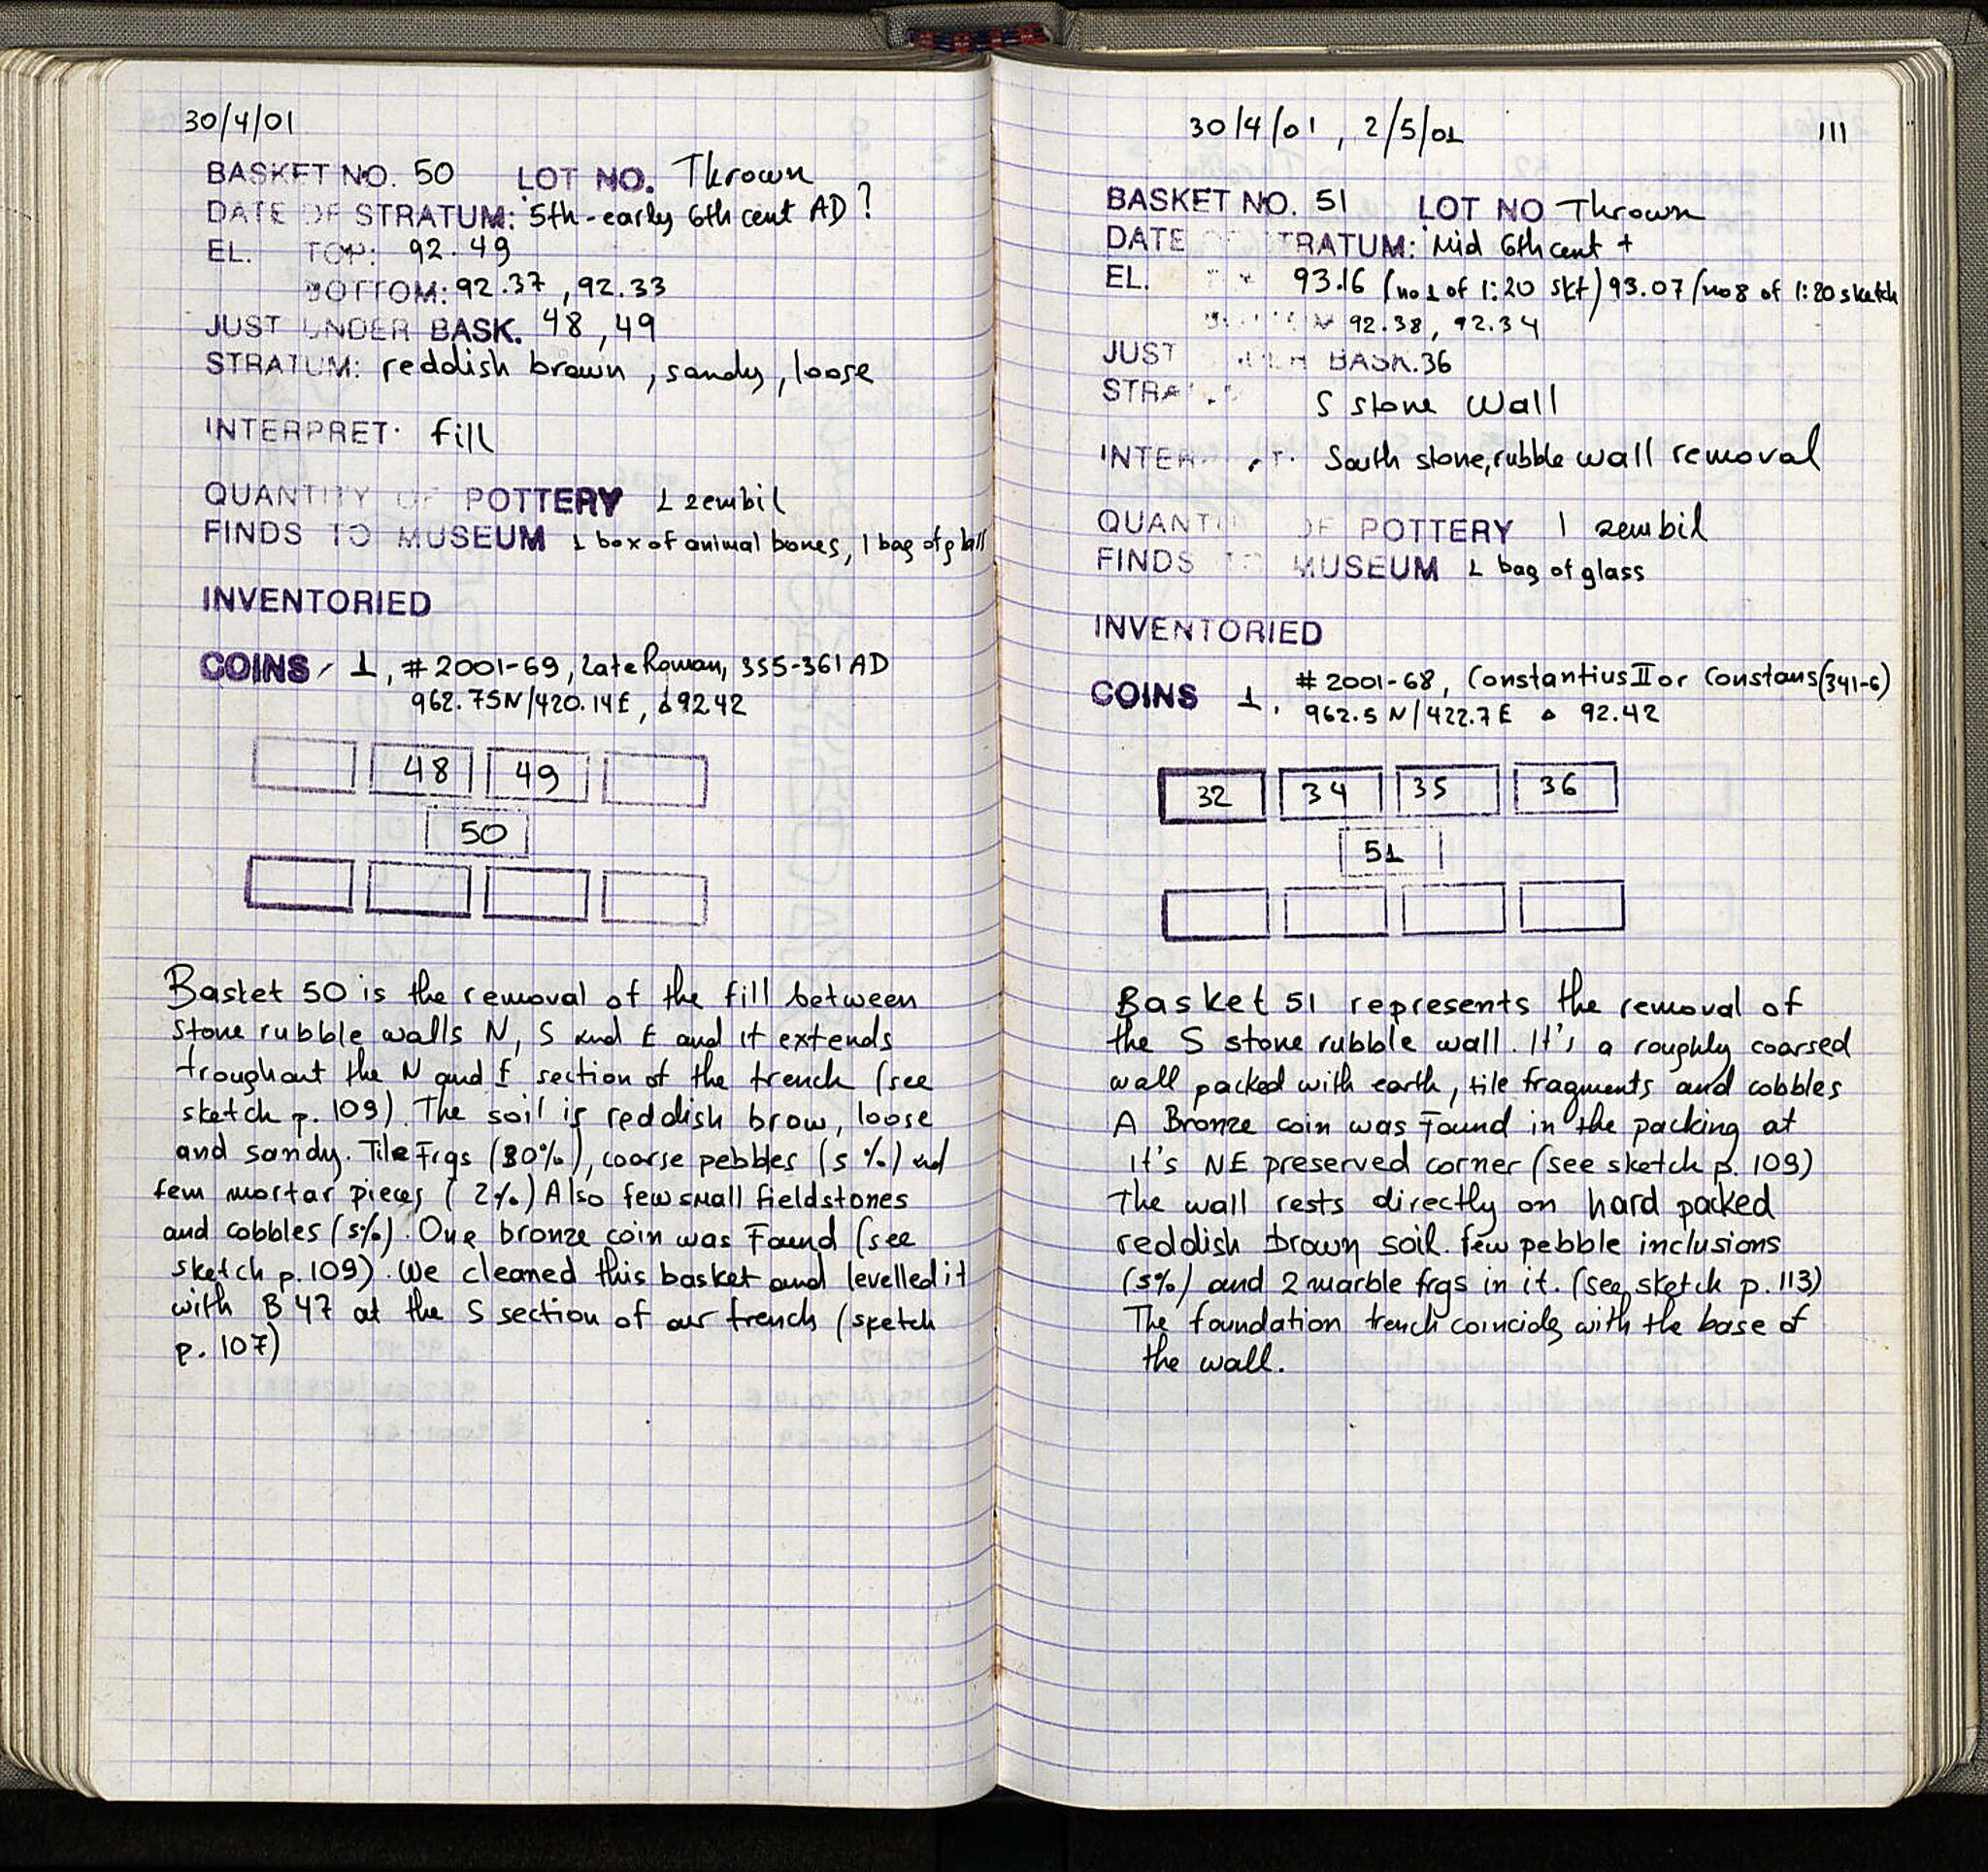 30/4/01
BASKET NO. 50 LOT NO. Thrown
DATE OF STRATUM: 5th-early 6th cent AD?
EL. TOP: 92.49
BOTTOM: 92.37, 92.33
JUST UNDER BASK. 48, 49
STRATUM: reddish brown, sandy, loose
INTERPRET. fill
QUANTITY OF POTTERY 1 zembil
FINDS TO MUSEUM 1 box of animal bones, 1 bag of glass
INVENTORIED
COINS 1, #2001-69, Late Roman, 355-361 AD
962.75N/420.14E, 92.42
48 49
50
Basket 50 is the removal of the fill between
stone rubble walls N, S and E and it extends
troughout the N and E section of the trench (see
sketch p. 109). The soil is reddish brow, loose
and sandy. Tile Frgs (30%), coarse pebbles (5%) and
few mortar pieces (2%) Also few small fieldstones
and cobbles (5%). One bronze coin was Found (see
sketch p. 109). We cleaned this basket and levelled it
with B 47 at the S section of our trench (sketch
p. 107)
30/4/01, 2/5/01 111
BASKET NO. 51 LOT NO Thrown
DATE OF STRATUM: Mid 6th cent +
EL. 93.16 (no 1 of 1:20 skt) 93.07 (no 8 of 1:20 sketch
BOTTOM 92.38, 92.34
JUST UNDER BASK. 36
STRATUM S stone Wall
INTERPRET. South stone, rubble wall removal
QUANTITY OF POTTERY 1 zembil
FINDS TO MUSEUM 1 bag of glass
INVENTORIED
COINS 1, #2001-68, Constantius II or Constans (341-6)
962.5 N/422.7 E 92.42
32 34 35 36
51
Basket 51 represents the removal of
the S stone rubble wall. It's a roughly coarsed
wall packed with earth, tile fragments and cobbles
A Bronze coin was Found in the packing at
it's NE preserved corner (see sketch p. 109)
The wall rests directly on hard packed
reddish brown soil. few pebble inclusions
(5%) and 2 marble frgs in it. (see sketch p. 113)
The foundation trench coincids with the base of
the wall.